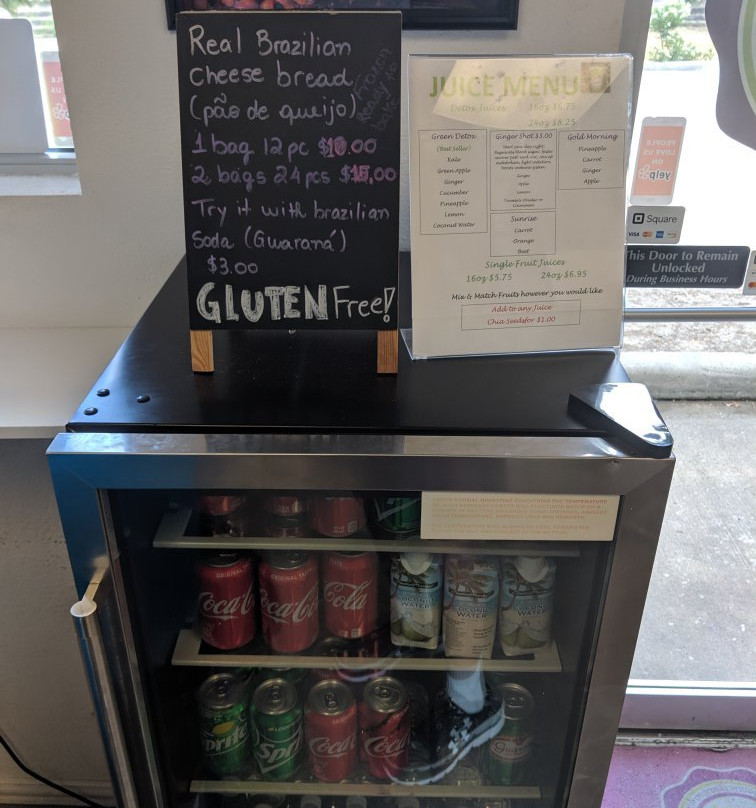 Real Brazilian
Cheese bread
(pão de queijo)
Frozen
Ready to
bake
1 bag 12 pc $10.00
2 bags 24 pcs $15.00
Try it with brazilian
Soda (Guaraná)
$3.00
GLUTEN Free!
JUICE MENU
Detox Juices 16oz $6.75
24oz $8.25
Green Detox
(Best Seller)
Kale
Green Apple
Ginger
Cucumber
Pineapple
Lemon
Coconut Water
Ginger Shot $3.00
Ginger
Apple
Lemon
Sunrise
Carrot
Orange
Beet
Gold Morning
Pineapple
Carrot
Ginger
Apple
Single Fruit Juices
16oz $5.75 24oz $6.95
Mix & Match Fruits however you would like
Add to any Juice
Chia Seeds for $1.00
PEOPLE
LOVE US
ON
yelp
Square
VISA
This Door to Remain
Unlocked
During Business Hours
ORIGINAL TASTE
Coca-Cola
Coca-Cola
Cola
COCONUT
WATER
COCONUT
WATER
COCONUT
WATER
Sprite
Sprite
Coca
Coca